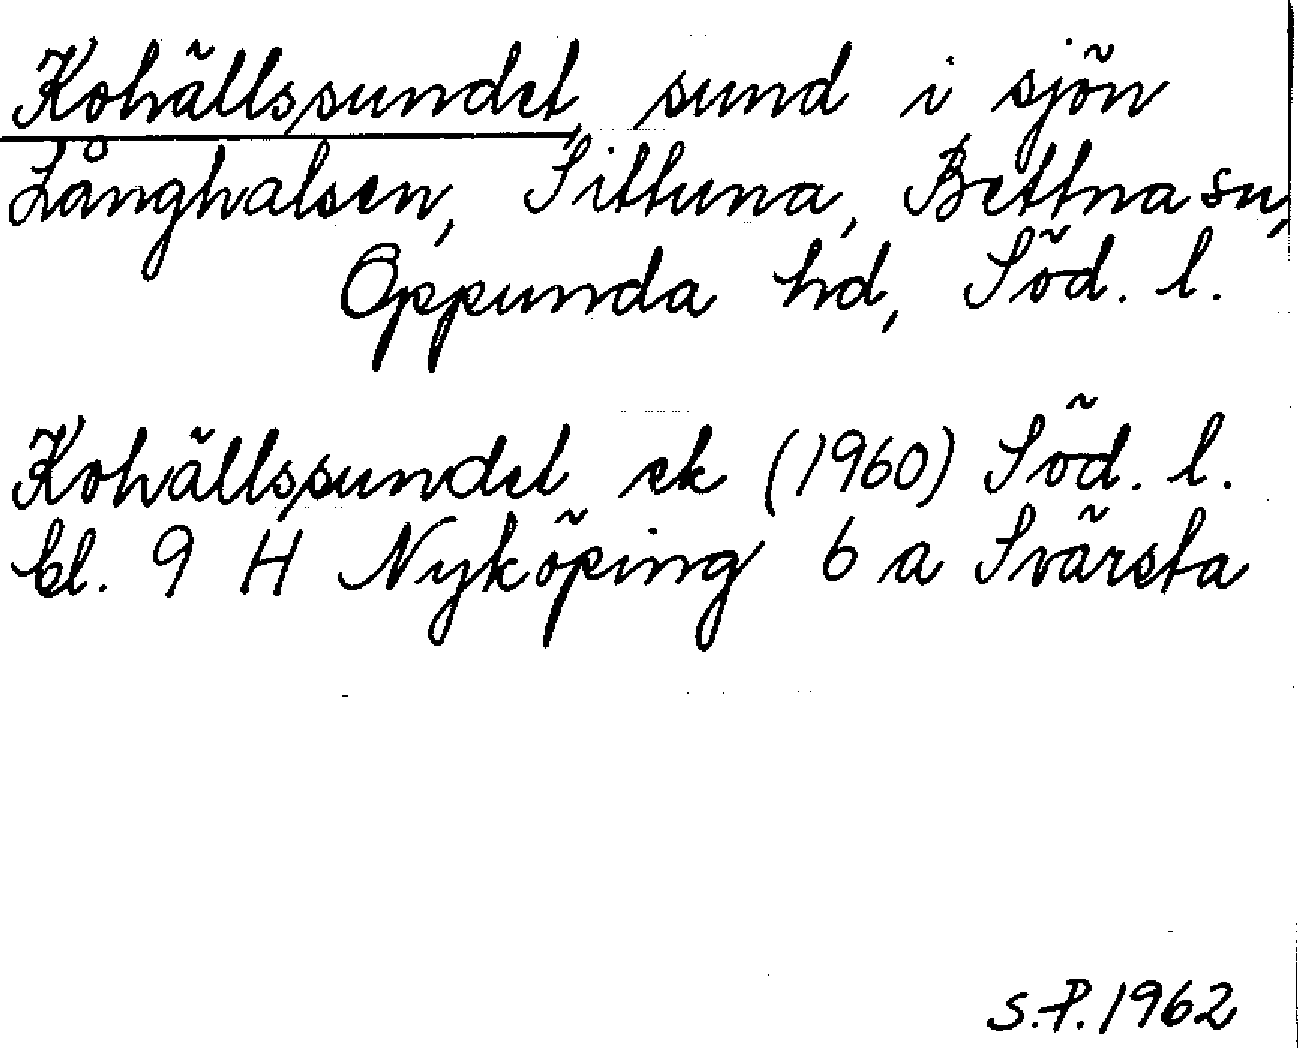 Kohällssundet, sund i sjön
Långhalsen, Sittuna, Bettna sn,
Oppunda hd, Söd. l.
Kohällssundet ek (1960) Söd. l.
bl. 9 H Nyköping 6 a Svärsta
S.P. 1962